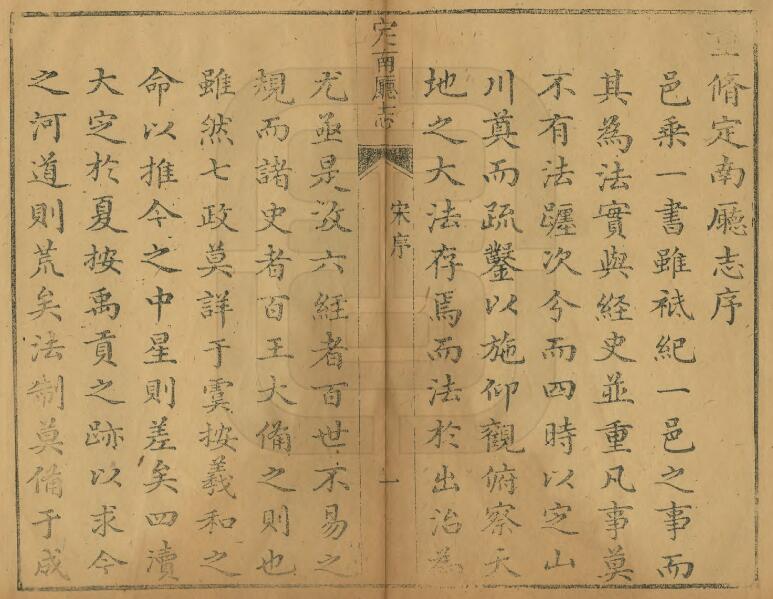 重脩定南廳志序
邑乗一書雖祇紀一邑之事而
其為法實與經史並重凡事莫
不有法躔次分而四時以定山
川奠而疏鑿以施仰觀俯察天
地之大法存焉而法於出治為
定南廳志
宋序
一
尤亟是故六經者百世不易之
規而諸史者百王大備之則也
雖然七政莫詳于虞按羲和之
命以推今之中星則差矣四瀆
大定於夏按禹貢之跡以求今
之河道則荒矣法制莫備于成